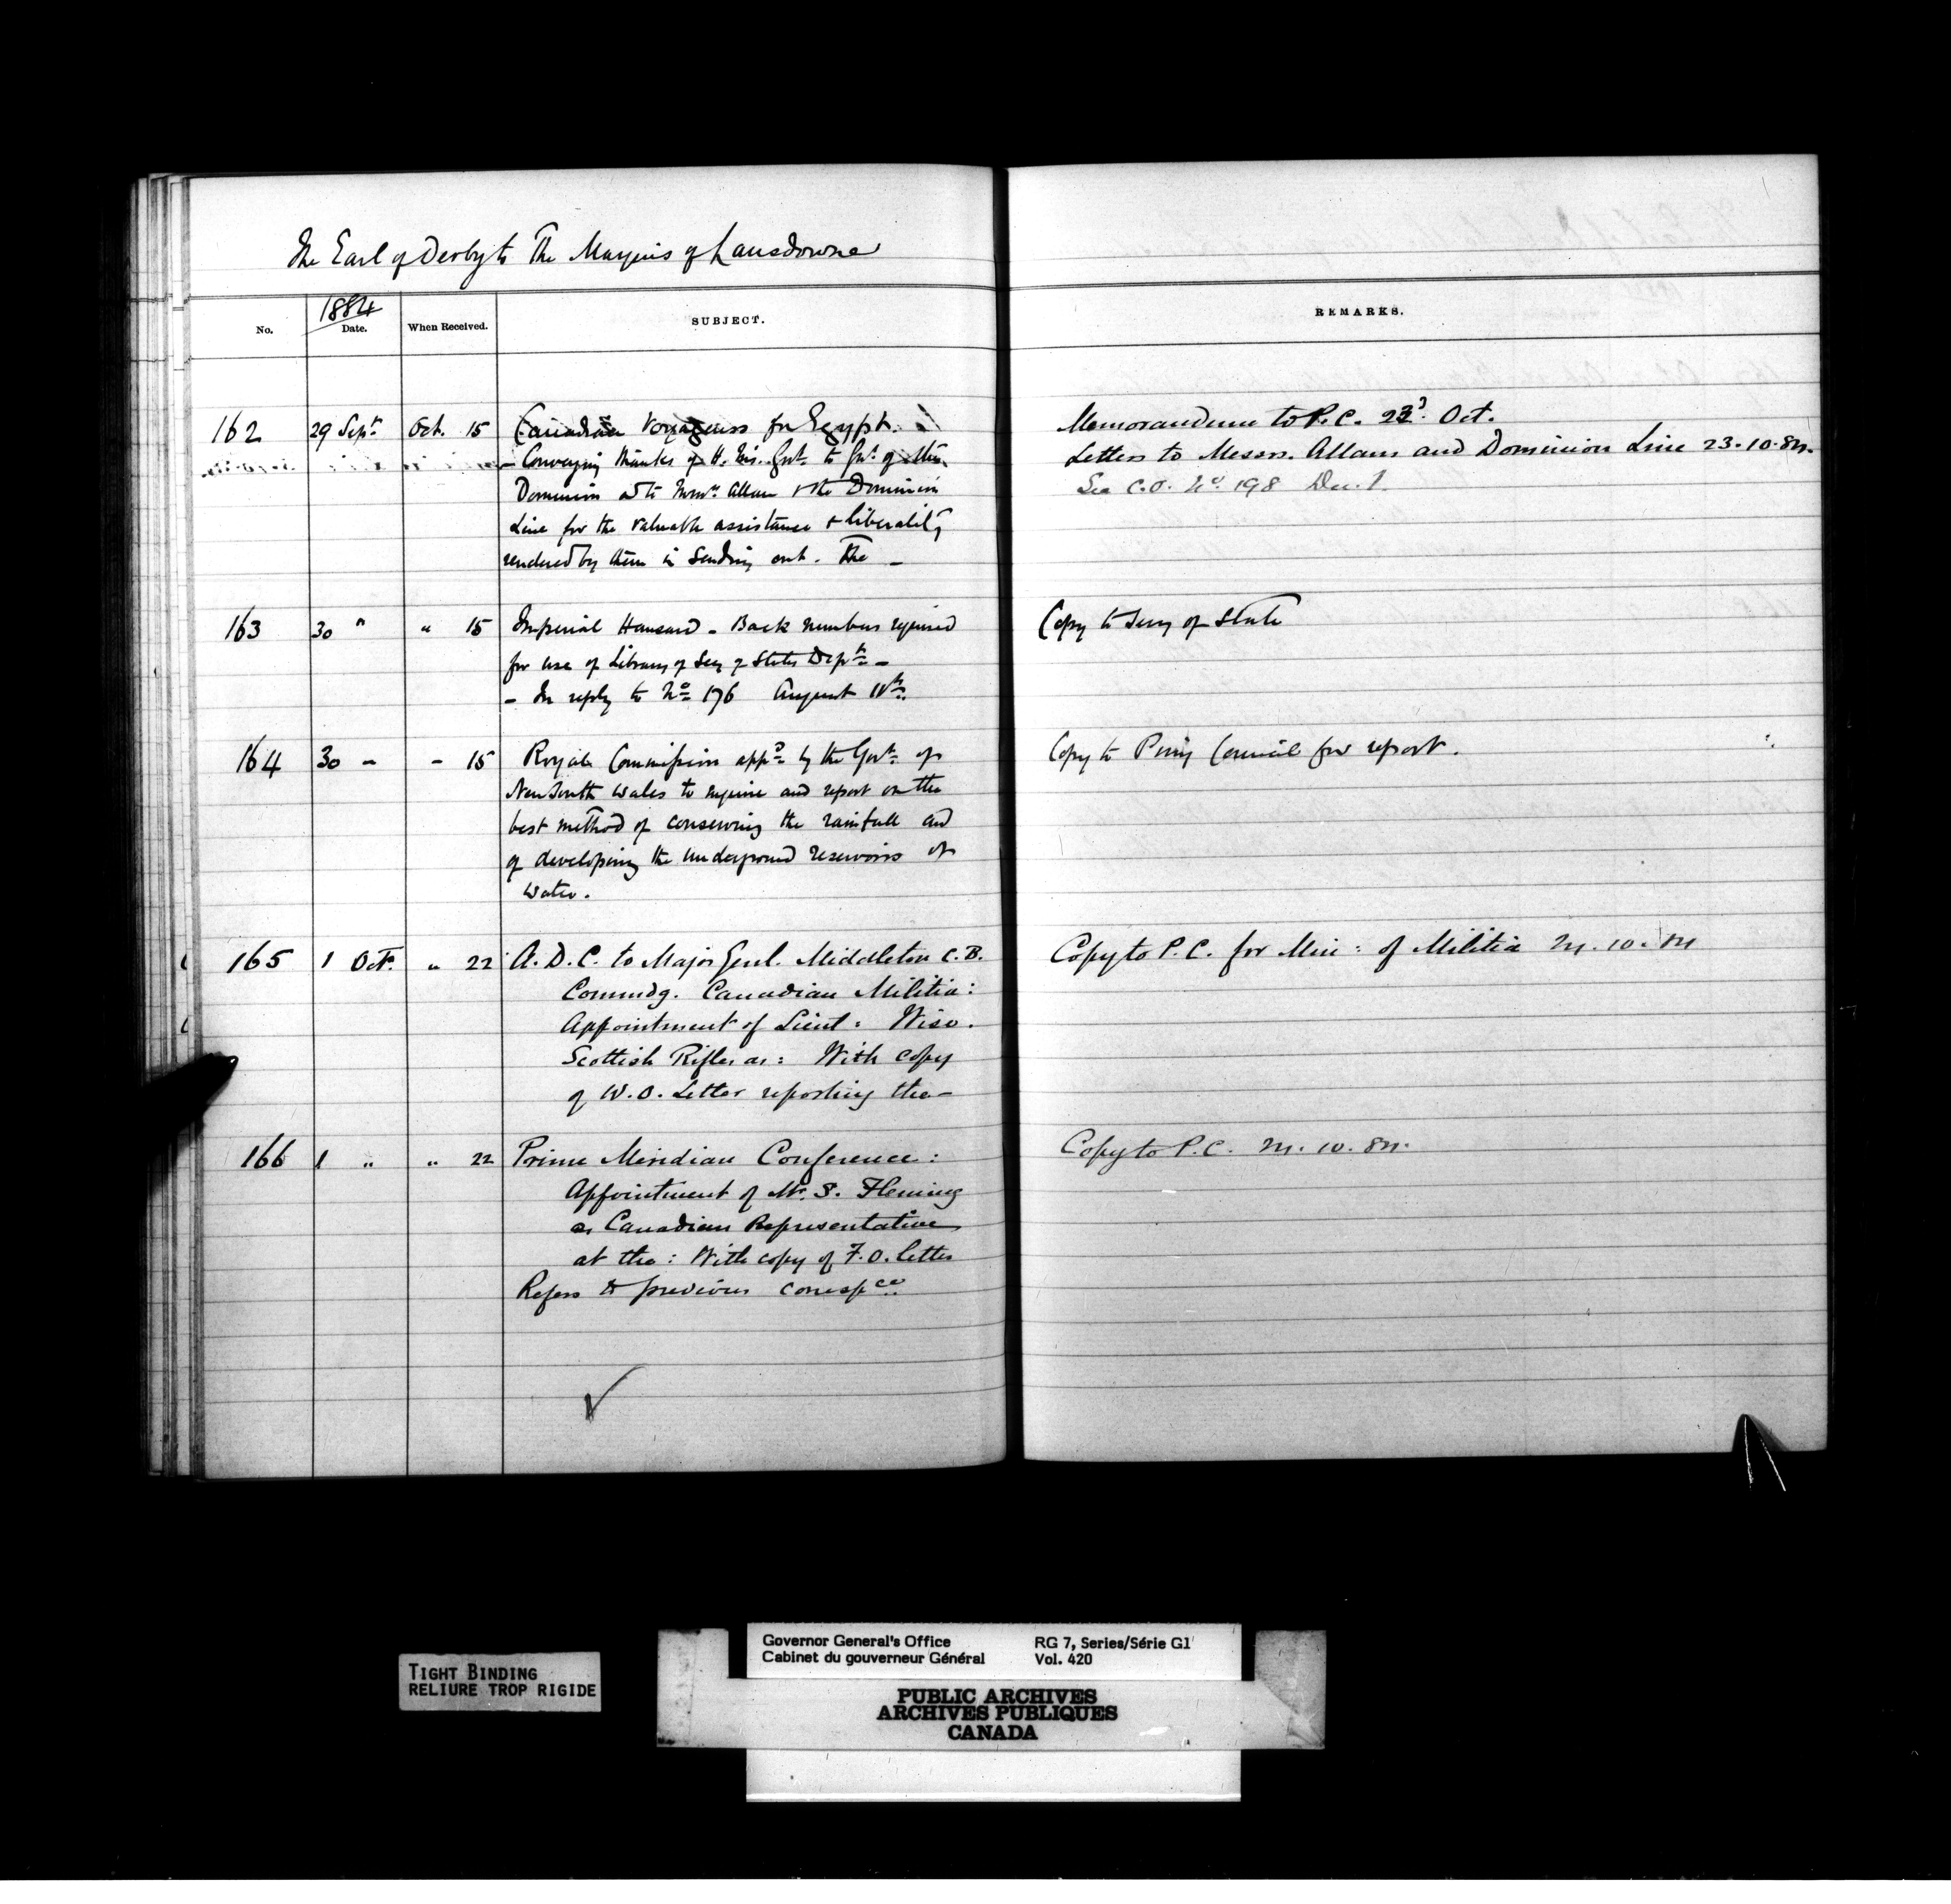 The Earl of Derby to The Marquis of Lansdowne
1884
No. Date. When Received. SUBJECT. REMARKS.
162 29 Sept. Oct. 15 Canadian Voyageurs for Egypt.
- Conveying thanks of H. M's. Govt. to Govt. of the
Dominion and to Messrs Allan & the Dominion
Line for the valuable assistance & liberality
rendered by them in sending out. The -
Memorandum to P.C. 23d. Oct.
Letters to Messrs. Allans and Dominion Line 23.10.84.
See C.O. No. 198 Dec. 1.
163 30 " " 15 Imperial Hansard - Back numbers required
for use of Library of Secy of States Dept. -
- In reply to No. 176 August 11th.
Copy to Secy of State
164 30 - - 15 Royal Commission appd. by the Govt. of
New South Wales to inquire and report on the
best method of conserving the rainfall and
of developing the underground reservoirs of
water.
Copy to Privy Council for report.
165 1 Oct. " 22 A.D.C. to Major Genl. Middleton C.B.
Commdg. Canadian Militia:
Appointment of Lieut: Wise.
Scottish Rifles as: With copy
of W.O. Letter reporting the -
Copy to P.C. for Min: of Militia 24.10.84
166 1 " " 22 Prime Meridian Conference:
Appointment of Mr. S. Fleming
as Canadian Representative
at the: With copy of F.O. letter
Refers to previous correspce.
Copy to P.C. 24.10.84.
TIGHT BINDING
RELIURE TROP RIGIDE
Governor General's Office RG 7, Series/Série G1
Cabinet du gouverneur Général Vol. 420
PUBLIC ARCHIVES
ARCHIVES PUBLIQUES
CANADA